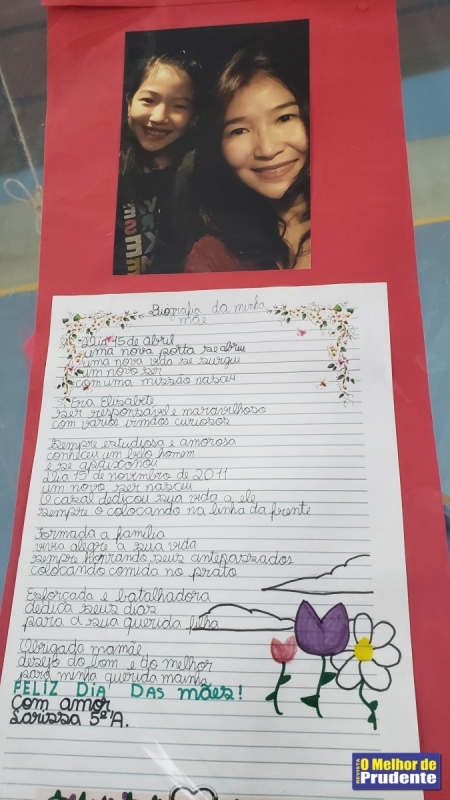 Biografia da minha
mãe
Dia 15 de abril
uma nova porta se abriu
uma nova vida se surgiu
um novo ser
com uma missão nasceu
Era Elisabete
ser responsável e maravilhoso
com vários irmãos curiosos
Sempre estudiosa e amorosa
conheceu um belo homem
e se apaixonou
Dia 19 de novembro de 2011
um novo ser nasceu
O casal dedicou sua vida a ele
sempre o colocando na linha da frente
Formada a família
vivia alegre a sua vida
sempre honrando seus antepassados
colocando comida no prato
Esforçada e batalhadora
dedica seus dias
para a sua querida filha
Obrigada mamãe
desejo do bom e do melhor
para minha querida mainha
FELIZ DIA DAS MÃES!
Com amor
Larissa 5ºA.
REVISTA O Melhor de
Prudente